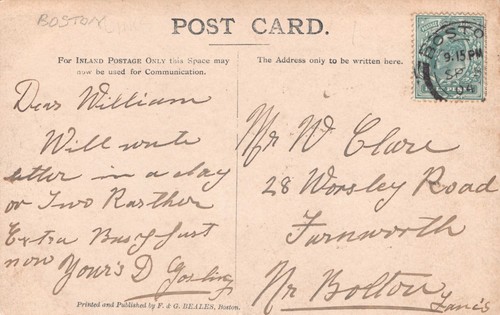 BOSTON
POST CARD.
FOR INLAND POSTAGE ONLY this Space may
now be used for Communication.
The Address only to be written here.
BOSTON
9.15 PM
SP
Dear William
Will write
etter in a day
or Two Rarther
Extra Busy just
now Your's D Gosling
Mr W Clare
28 Worsley Road
Farnworth
Nr Bolton
Lancs
Printed and Published by F. & G. BEALES, Boston.